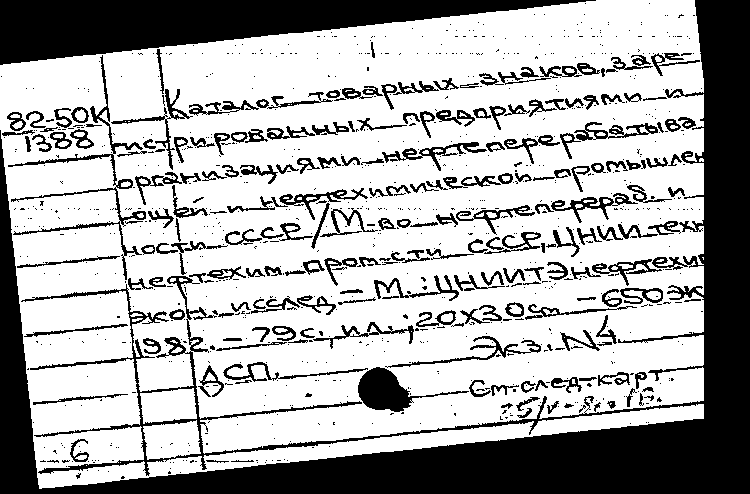 Каталог товарных знаков, заре-
82-50К гистрированных предприятиями и
1388 организациями нефтеперерабатыва-
ющей и нефтехимической промышлен
ности СССР / М-во нефтеперераб. и
нефтехим. пром-сти СССР, ЦНИИ техн
экон. исслед. – М. : ЦНИИТЭнефтехим
1982. – 79 с., ил. ; 20х30 см – 650 эк
Экз. N4
ДСП.
См. след. карт.
6